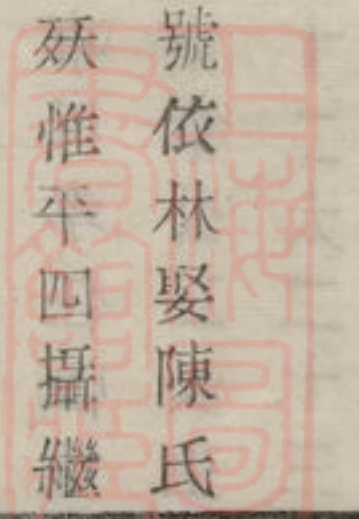 號依林娶陳氏
殀惟平四攝繼